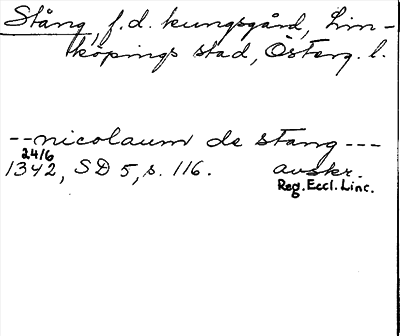 Stång, f.d. kungsgård, Lin-
köpings stad, Österg. l.
--nicolaum de stang---
24/6
1342, SD 5, s. 116. avskr.
Reg. Eccl. Linc.